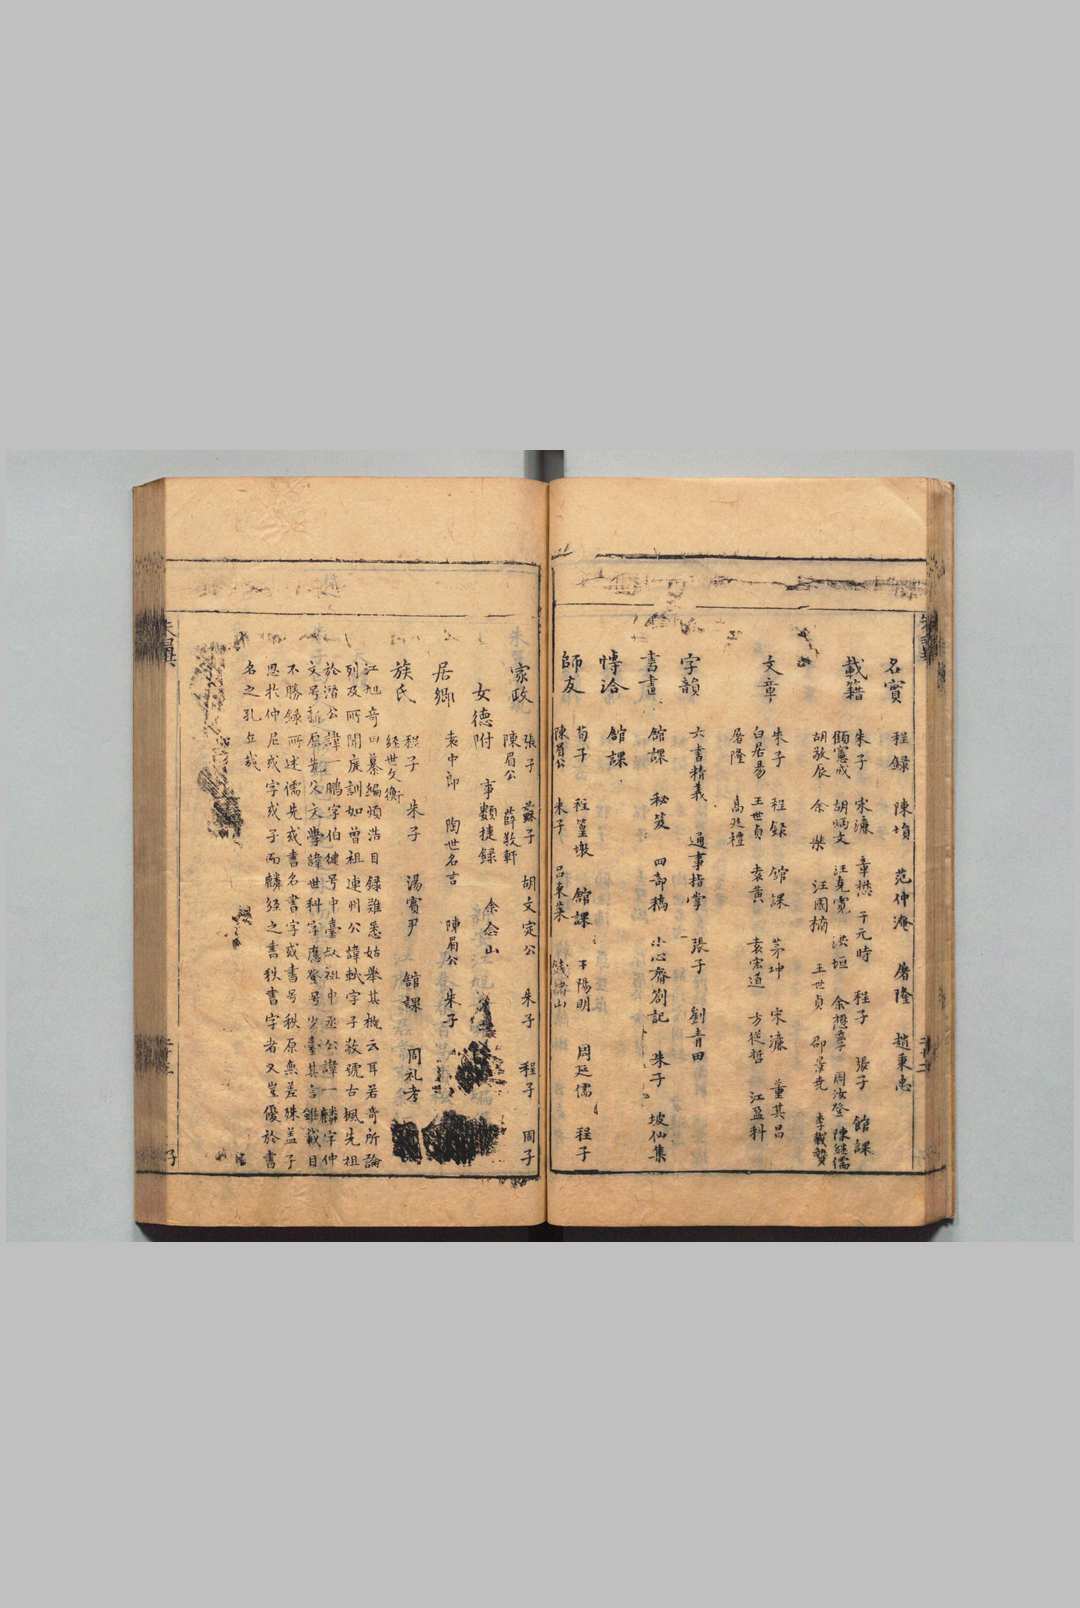 名實 程録 陳塤 范仲淹 屠隆 趙秉忠
載籍 朱子 宋濂 章懋 于元時 程子 張子 館課
顧憲成 胡炳文 汪克寬 洪垣 余懋學 周汝登 陳繼儒
胡敬辰 余 汪國楠 王世貞 邵景尭 李載贄
文章 朱子 程録 館課 茅坤 宋濂 董其昌
白居易 王世貞 袁黄 袁宏道 方從哲 江盈科
屠隆 高廷禮
字韻 六書精義 通事指掌 張子 劉青田
書畫 館課 秘笈 四部稿 小心齋劄記 朱子 坡仙集
愽洽 館課
師友 荀子 程篁墩 館課 王陽明 周廷儒 程子
陳眉公 朱子 吕東萊 錢緒山
家政 張子 蘇子 胡文定公 朱子 程子 周子
陳眉公 薛敬軒
女德附 事類捷録 余念山
居鄉 袁中郎 陶世名言 陳眉公 朱子
族氏 程子 朱子 湯賓尹 館課 周礼考
經世文衡
江旭奇曰纂編煩浩目録難悉姑舉其概云耳若奇所論
列及所聞庭訓如曾祖連州公諱軾字子敬號古楓先祖
於潛公諱一鵬字伯健号中臺叔祖中丞公諱一麟字仲
文号新屏先父文學諱世科字應登号少臺其言雖載目
不勝録所述儒先或書名書字或書号秩原無差殊盖子
思於仲尼或字或子而麟經之書秩書字者又豈優於書
名之孔丘哉